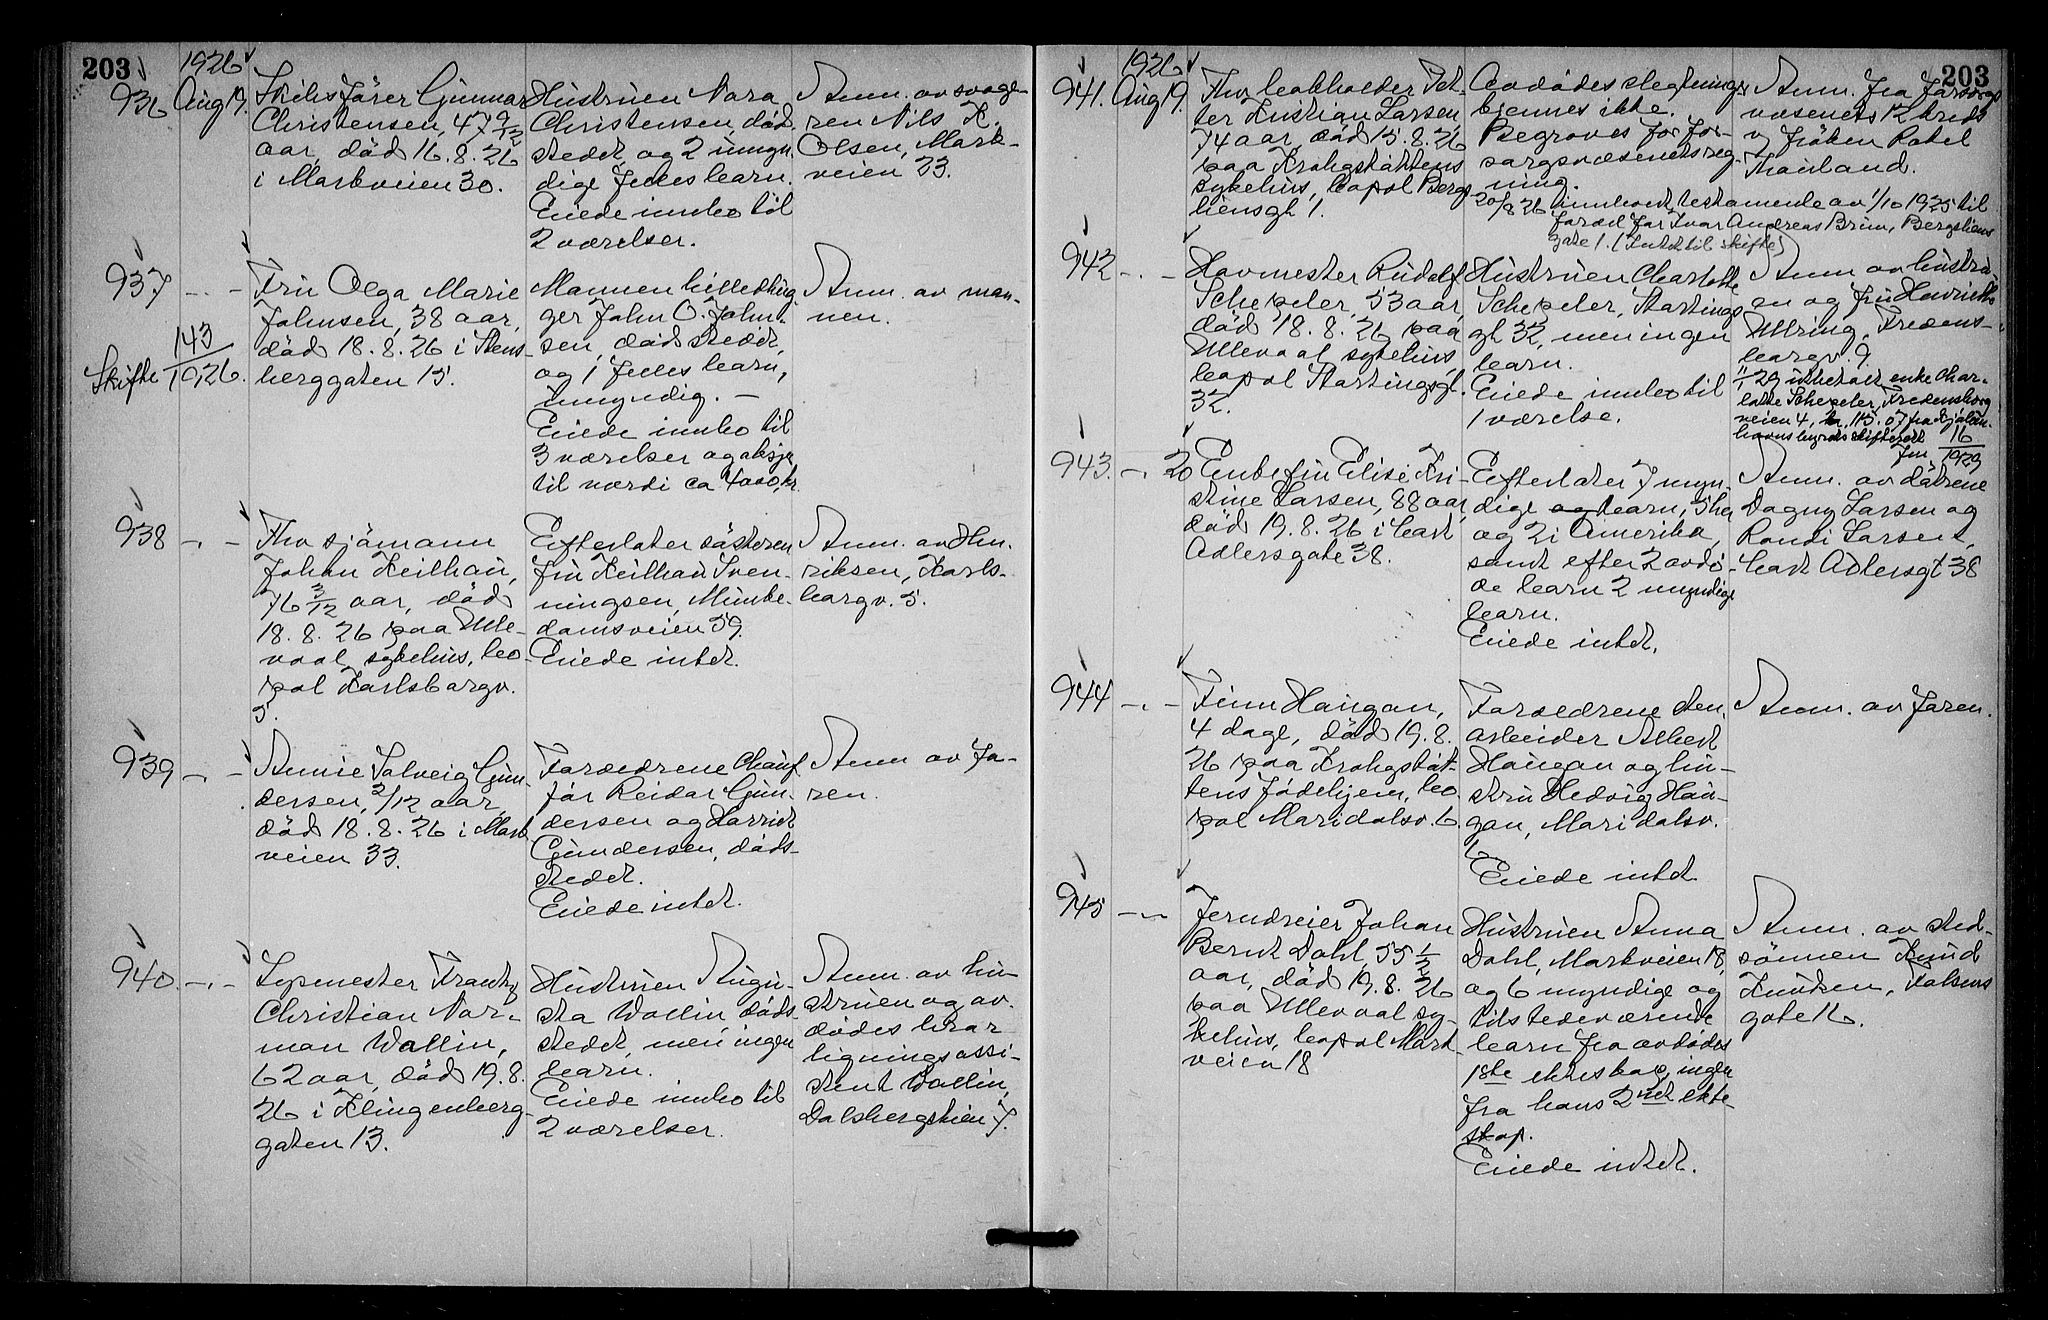 203
1926
936 Aug 19. Skibsförer Gunnar
Christensen, 47 9/12
aar, död 16.8.26
i Markveien 30.
Hustruen Nora
Christensen, död-
stedet, og 2 umyn-
dige fælles barn.
Eiede innbo til
2 værelser.
Anm. av svoge-
ren Nils K.
Olsen, Mark-
veien 23.
937 -.- Fru Olga Marie
Johnsen, 38 aar,
död 18.8.26 i Stens-
berggaten 15.
Skifte 143/1926.
Mannen
John O. John-
sen, dödstedet,
og 1 fælles barn,
umyndig. -
Eiede innbo til
3 værelser og aksjer
til værdi ca 4000 kr.
Anm. av man-
nen.
938 -.- Fhv sjömann
Johan Keilhau,
76 3/12 aar, död
18.8.26 paa Ulle-
vaal sykehus, bo-
pal Karlsborgv.
5.
Efterlater sösteren
fru Keilhau Sven-
ningsen, Munke-
damsveien 59.
Eiede intet.
Anm. av Hen-
riksen, Karls-
borgv. 5.
939 -.- Annie Solveig Gun-
dersen, 2/12 aar,
död 18.8.26 i Mark-
veien 33.
Forældrene Chauf-
för Reidar Gun-
dersen og Harriet
Gundersen, döds-
stedet.
Eiede intet.
Anm av fa-
ren.
940. -.- Typmester Frantz
Christian Nor-
man Wallin,
62 aar, död 19.8.
26 i Klingenberg-
gaten 13.
Hustruen Augu-
sta Wallin döds-
stedet, men ingen
barn.
Eiede innbo til
2 værelser.
Anm. av hu-
struen og av-
dödes bror
ligningsassi-
stent Wallin,
Dalsbergstien 7.
203
1926
941. Aug 19. Fhv bokholder Pet-
ter Kristian Larsen
74 aar, död 15.8.26
paa Krohgstöttens
sykehus, bopal Bergs-
liensgt 1.
Avdödes slegtninger
kjennes ikke.
Begraves for for-
sorgsvæsenets reg-
ning.
Anm. fra Forsorgs-
væsenets 12 kreds
v/ fröken Rakel
20/8 26 innlevert testamente av 1/10 1925 til
fordel for Ivar Andreas Brun, Bergsliens
gate 1. (Inntt til skifte)
942 -.- Hovmester Rudolf
Schepeler, 53 aar,
död 18.8.26 paa
Ullevaal sykehus,
bopal Stortingsgt.
32.
Hustruen Charlotte
Schepeler, Stortings-
gt 32, men ingen
barn.
Eiede innbo til
1 værelse.
Anm av hustru-
en og fru Henriette
Ullring, Fredens-
borgv. 9.
11/1 29 utbetalt enke Char-
lotte Schepeler, Fredensborg-
veien 4, kr. 115.07 fra Kjøben-
havns byrets skifteret
16/1929
943. -. 20 Enkefru Elise Kri-
stine Larsen, 88 aar,
död 19.8.26 i Carl
Adlersgate 38.
Efterlater 7 myn-
dige og barn, 5 her
og 2 i Amerika,
samt efter 2 avdö-
de barn 2 myndige
barn.
Eiede intet.
Anm. av dötrene
Dagny Larsen og
Randi Larsen,
Carl Adlersgt 38
944 -.- Finn Haugan,
4 dage, död 19.8.
26 paa Krohgstöt-
tens födehjem, bo-
pal Maridalsv. 6.
Forældrene sten-
arbeider Albert
Haugan og hu-
stru Hedvig Hau-
gan, Maridalsv.
6.
Eiede intet.
Anm. av faren.
945 -.- Jerndreier Johan
Bernt Dahl, 55 1/2
aar, död 19.8.26
paa Ullevaal sy-
kehus, bopal Mark-
veien 18
Hustruen Anna
Dahl, Markveien 18,
og 6 myndige og
tilstedeværende
barn fra avdödes
1ste ekteskap, ingen
fra hans 2net ekte-
skap.
Eiede intet.
Anm. av sted-
sönnen Knud
Knudsen, Falsens
gate 16.